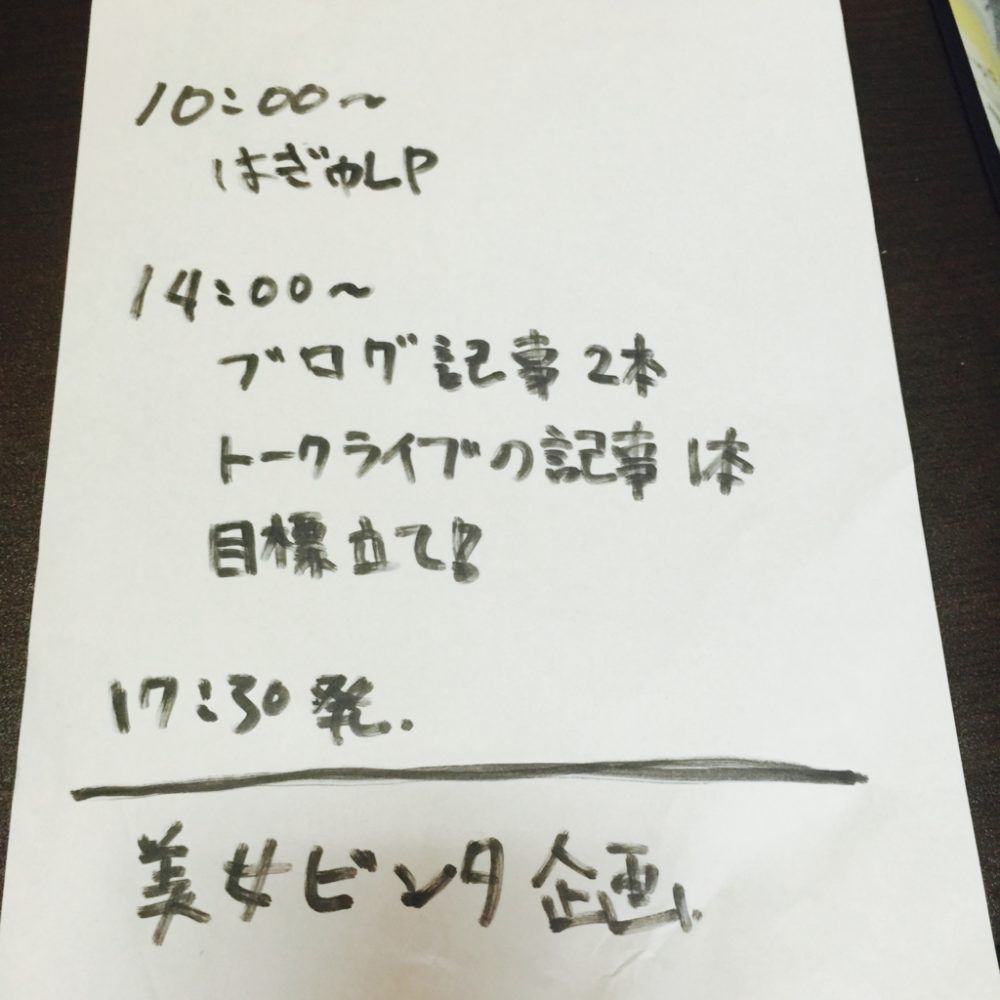 10:00〜
はぎゅLP
14:00〜
ブログ記事2本
トークライブの記事1本
目標立て!
17:30発.
美女ビンタ企画.